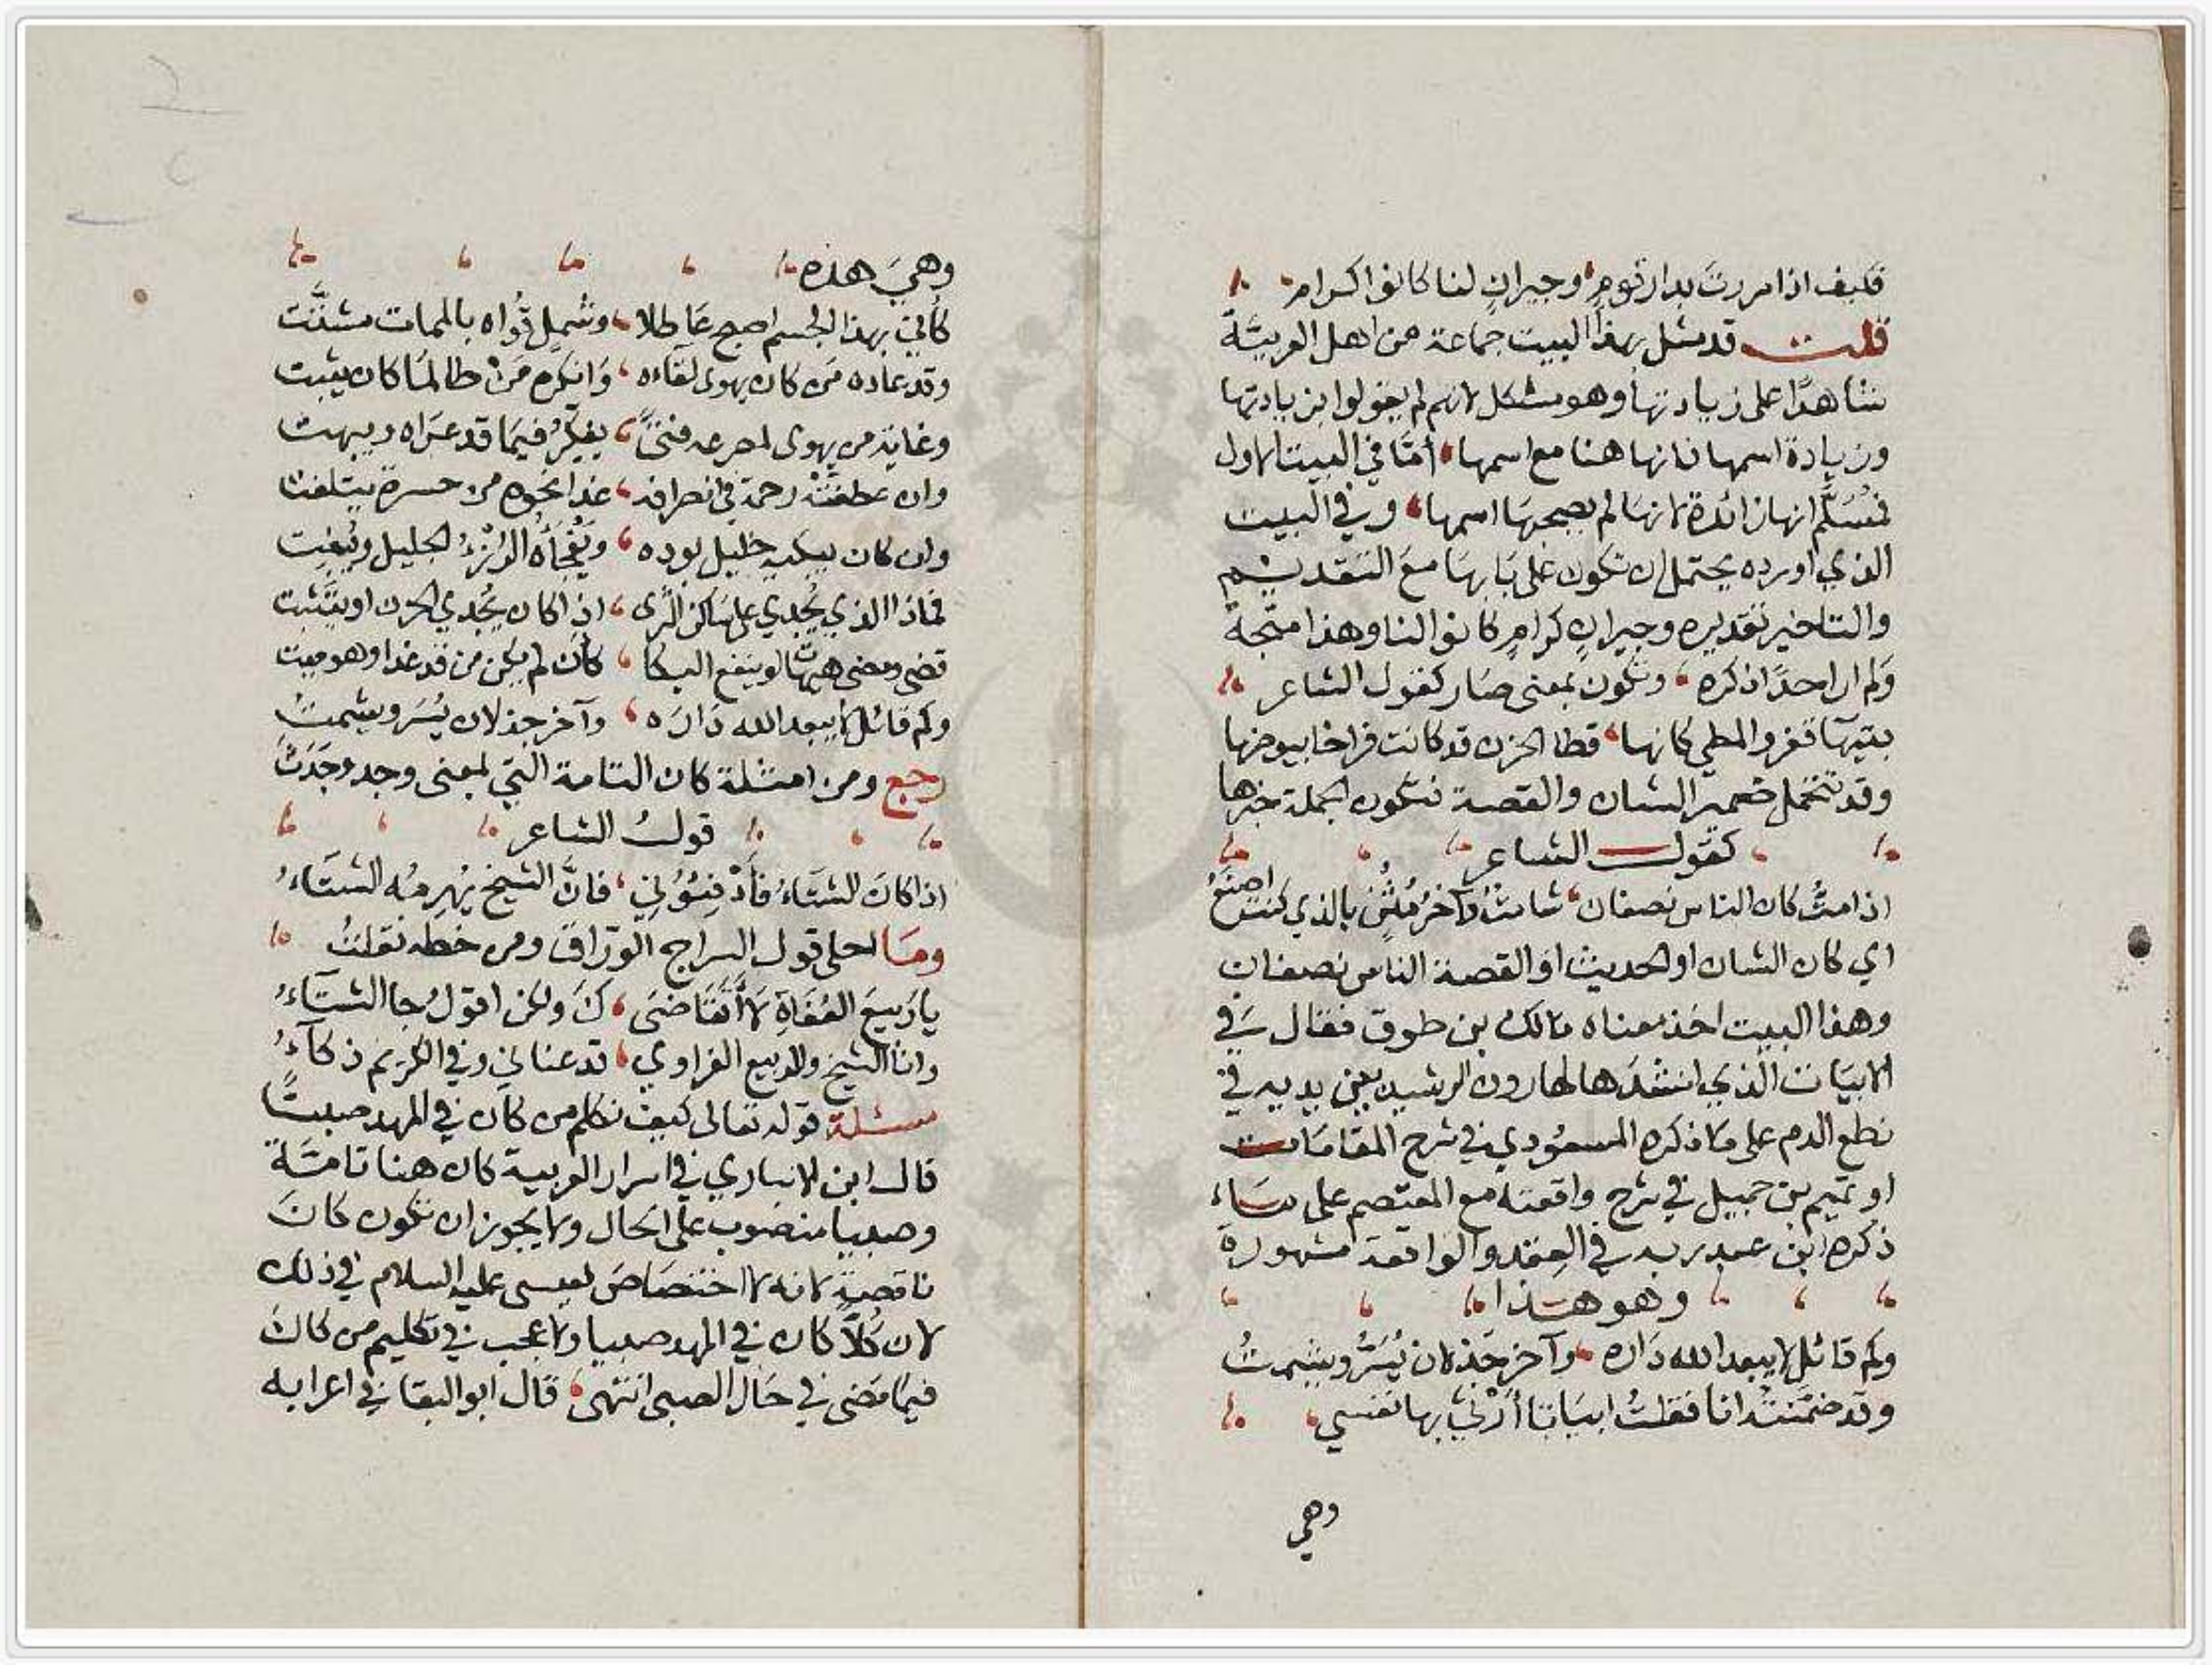 فكيف اذا مررت بدار قوم وجيران لنا كانوا كرام
قلت قد مثل بهذا البيت جماعة من اهل العربيّة
شاهدًا على زيادتها وهو مشكل لانهم لم يقولوا بزيادتها
وزيادة اسمها فانها هنا مع اسمها أمّا في البيت الاول
فمُسَلَّم انها زائدة لانها لم يصحبها اسمها وفي البيت
الذي اورده يحتمل ان تكون على بابها مع التقديم
والتاخير تقديره وجيرانٍ كرامٍ كانوا لنا وهذا متّجه
ولم ار احدًا ذكره وتكون بمعنى صار كقول الشاعر
بتيهآ قفر والمطي كانها قطا الحزن قد كانت فراخا بيوضها
وقد تتحمل ضمير الشان والقصة فتكون الجملة خبرها
كقول الشاعر
اذا متُّ كان الناس نصفان شامتٌ وآخرُ مُثْنٍ بالذي كنت اصنعُ
اي كان الشان او الحديث او القصة الناس نصفان
وهذا البيت اخذ معناه مالك بن طوق فقال في
الابيات الذي انشدها لهارون الرشيد بين يديه في
نطع الدم على ما ذكره المسعودي في شرح المقامات
او تميم بن جميل في شرح واقعته مع المعتصم على ما
ذكره ابن عبد ربه في العقد والواقعة مشهورة
وهو هذا
وكم قائل لا يبعد الله داره وآخر جذلان يُسَرُّ ويشمتُ
وقد ضمّنته انا فقلتُ ابياتا أرثي بها نفسي
وهي
وهيَ هذه
كأني بهذا الجسم اصبح عاطلا وشمل قُواه بالممات مشتَّت
وقد عاده من كان يهوى لقاءه وانكره من طالما كان يثبت
وغاية من يهوى لمصرعه فتىً يفكّرُ فيما قد عراه ويبهت
وان عطفتْه رحمة في انصرافه غدا نحوه من حسرة يتلفت
وان كان يبكيه خليل بوده ويَفْجأهُ الرُزْءُ الجليل ويُبغت
فماذا الذي يُجدي على ساكن الثرى اذا كان يُجدي الحزن او يتثبت
قضى ومضى هيهات لو ينفع البكا كأن لم يكن من قد غدا وهو ميت
وكم قائل لا يبعد الله دَارَه وآخر جذلان يُسَر ويشمتُ
رجع ومن امثلة كان التامة التي بمعنى وجد وجَدَتْ
قولُ الشاعر
اذا كانَ الشتَاءُ فأدْفِئُوْنِي فانَّ الشيخ يُهرمُه الشتَاءُ
وما احلى قول السراج الوراق ومن خطه نقلتُ
يا رَبيعَ العُفَاةِ لا أتَقَاضَى كَ ولكن اقولُ جا الشتآءُ
وانا الشيخ والربيع الفزاوي قد عناني وفي الكريم ذكآءُ
مسئلة قوله تعالى كيف نكلم من كان في المهد صبيًّا
قال ابن الانباري في اسرار العربية كان هنا تامّة
وصبيا منصوب على الحال ولا يجوز ان تكون كانَ
ناقصة لانه لا اختصَاصَ لعيسى عليه السلام في ذلك
لان كُلاًّ كان في المهد صبيا ولا عجب في تكليم من كان
فيما مَضى في حَال الصبى انتهى قال ابو البقا في اعرابه